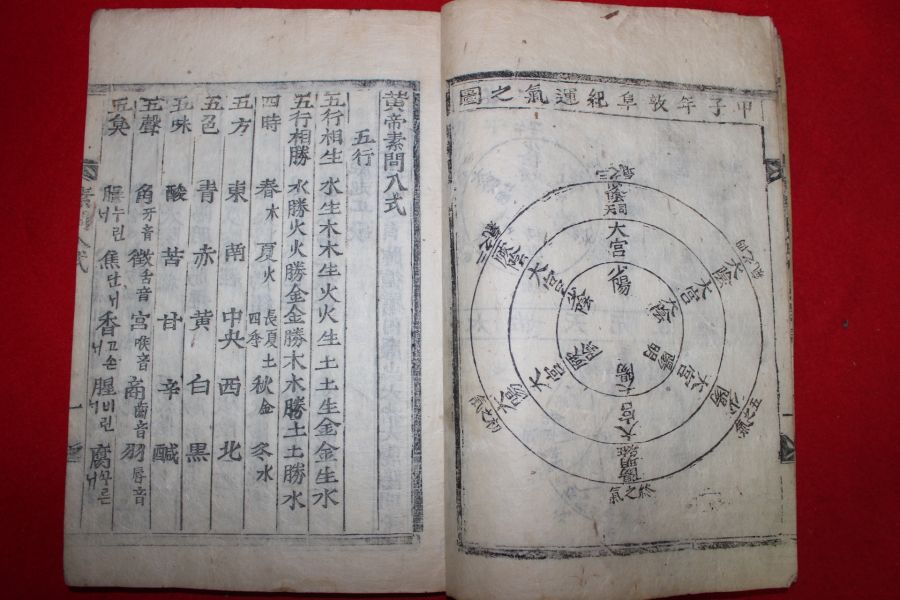 甲子年敦阜紀運氣之圖
司天
大宮
少陽
太陰
大宮
少陽
大宮
陽明
終之氣
大宮
太陽
大宮
大宮
黃帝素問入式
五行
五行相生 水生木木生火火生土土生金金生水
五行相勝 水勝火火勝金金勝木木勝土土勝水
四時 春木 夏火 長夏四季土 秋金 冬水
五方 東 南 中央 西 北
五色 青 赤 黃 白 黑
五味 酸 苦 甘 辛 鹹
五聲 角牙音 徵舌音 宮喉音 商齒音 羽脣音
五臭 누린내 焦단내 香고손내 腥비린내 腐